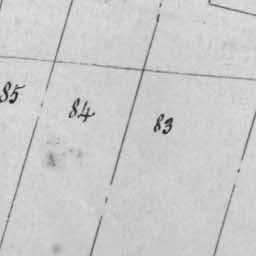 85 84 83